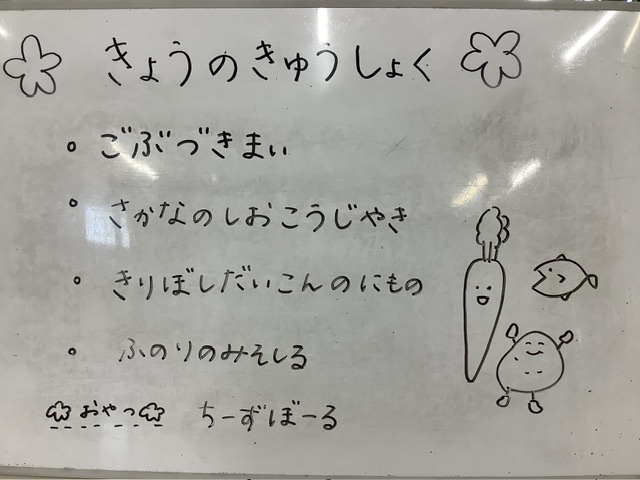 きょうのきゅうしょく
• ごぶづきまい
• さかなのしおこうじやき
• きりぼしだいこんのにもの
• ふのりのみそしる
おやつ ちーずぼーる